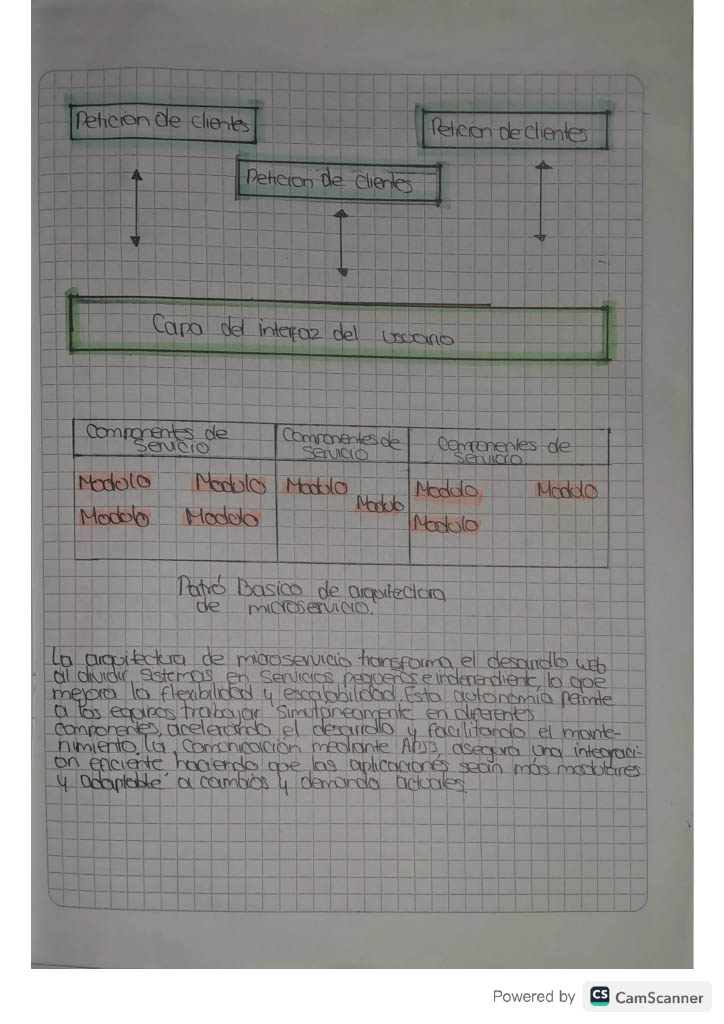 Peticion de clientes
Peticion de clientes
Peticion de clientes
Capa del interfaz del usuario
Componentes de servicio
Componentes de servicio
Componentes de servicio
Modulo Modulo
Modulo Modulo
Modulo
Modulo
Modulo Modulo
Modulo
Patró Basico de arquitectura
de microservicio.
La arquitectura de microservicio transforma el desarrollo web
al dividir sistemas en servicios pequeños e independiente, lo que
mejora la flexibilidad y escalabilidad. Esta autonomía permite
a los equipos trabajar simultaneamente en diferentes
componentes, acelerando el desarrollo y facilitando el mante-
nimiento. La comunicación mediante asegura una integraci-
on eficiente haciendo que las aplicaciones sean más modulares
y adaptable a cambios y demanda actuales.
Powered by CS CamScanner